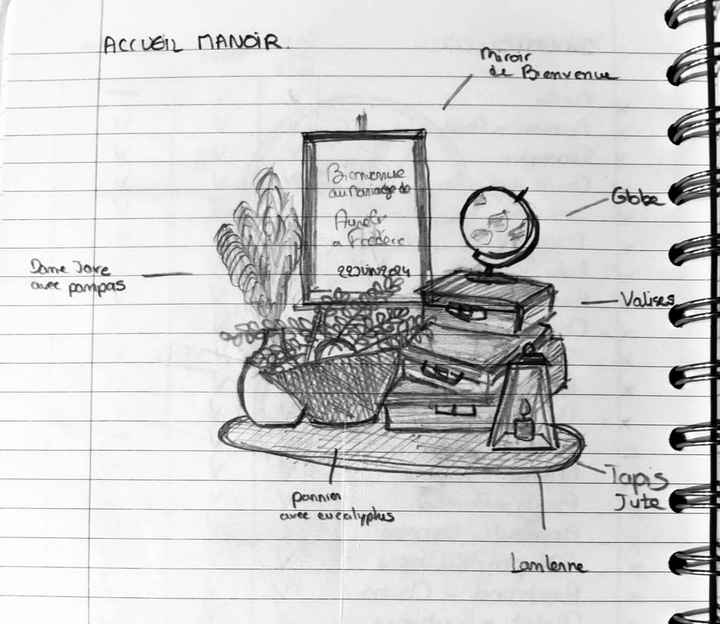 ACCUEIL MANOIR.
Miroir
de Bienvenue
Bienvenue
au Mariage de
Globe
22 Juin 2024
Dame Jore
avec pampas
Valises
Tapis
Jute
pannier
avec eucalyptus
Lanterne